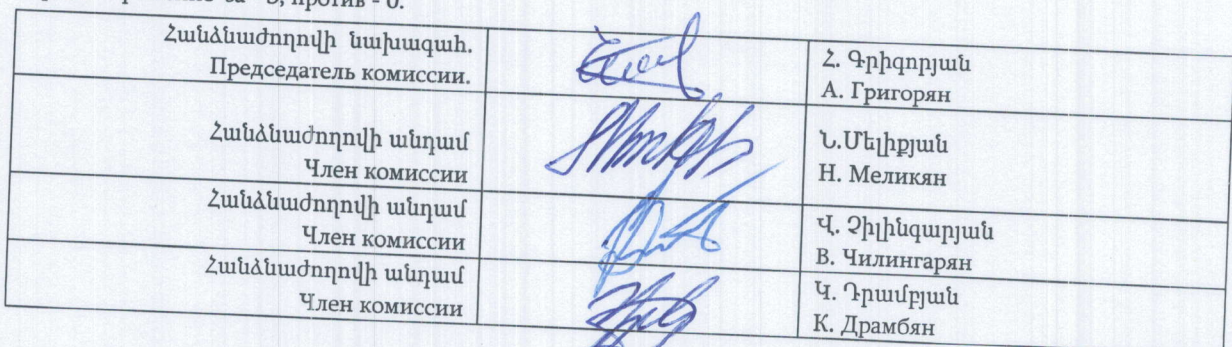 против - 0.
Հանձնաժողովի նախագահ.
Председатель комиссии.
Հ. Գրիգորյան
А. Григорян
Հանձնաժողովի անդամ
Член комиссии
Ն.Մելիքյան
Н. Меликян
Հանձնաժողովի անդամ
Член комиссии
Վ. Չիլինգարյան
В. Чилингарян
Հանձնաժողովի անդամ
Член комиссии
Կ. Դրամբյան
К. Драмбян